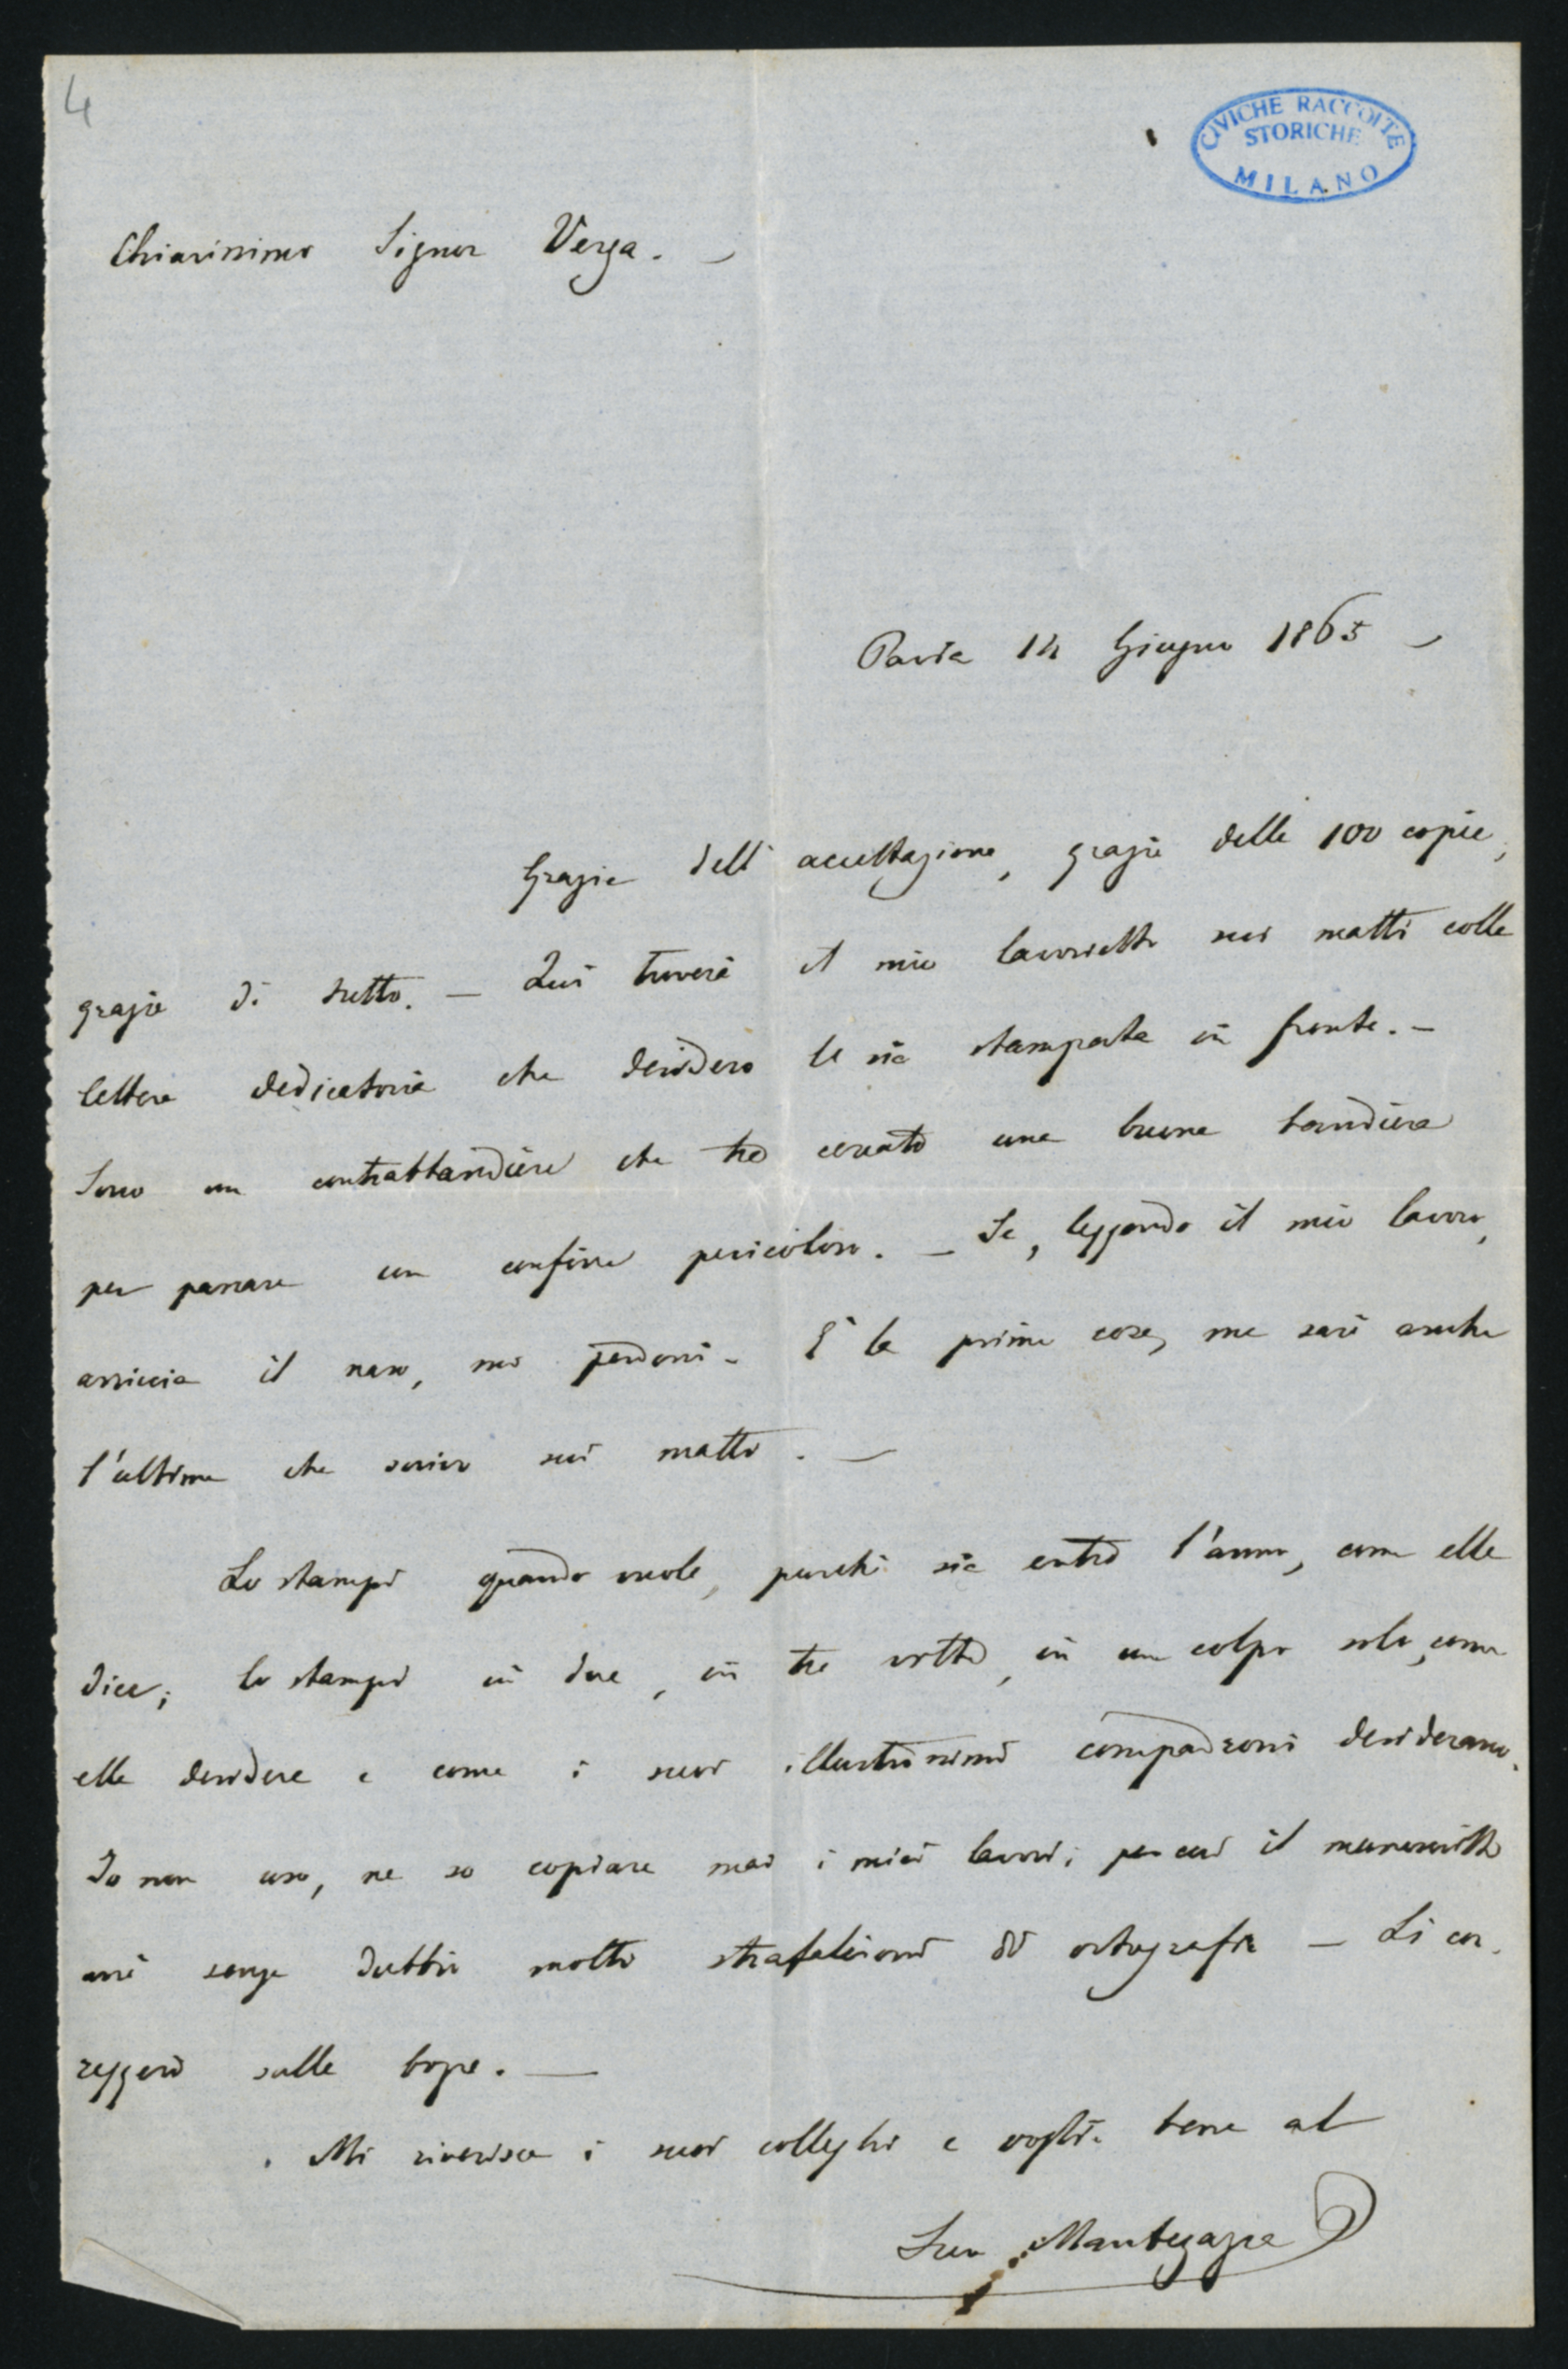 4
CIVICHE RACCOLTE
STORICHE
MILANO
Chiarissimo Signor Verga. —
Pavia 14 Giugno 1865 —
Grazie dell'accettazione, grazie delle 100 copie,
grazie di tutto. — Qui troverà il mio lavoretto sui matti colla
lettera dedicatoria che desidero le sia stampata in fronte. —
Sono un contrabbandiere che ho cercato una buona bandiera
per passare un confine pericoloso. — Se, leggendo il mio lavoro,
arriccia il naso, mi perdoni. È la prima cosa, ma sarà anche
l'ultima che scrivo sui matti. —
Lo stampi quando vuole, purché sia entro l'anno, come ella
dice; lo stampi in due, in tre volte, in un colpo solo, come
ella desidera e come i suoi illustrissimi compadroni desiderano.
Io non uso, ne so copiare mai i miei lavori; per cui il manoscritto
avrà senza dubbio molti strafalcioni di ortografia — Li cor-
reggerò sulle bozze. —
Mi riverisca i suoi colleghi e voglia bene al
Suo Mantegazza